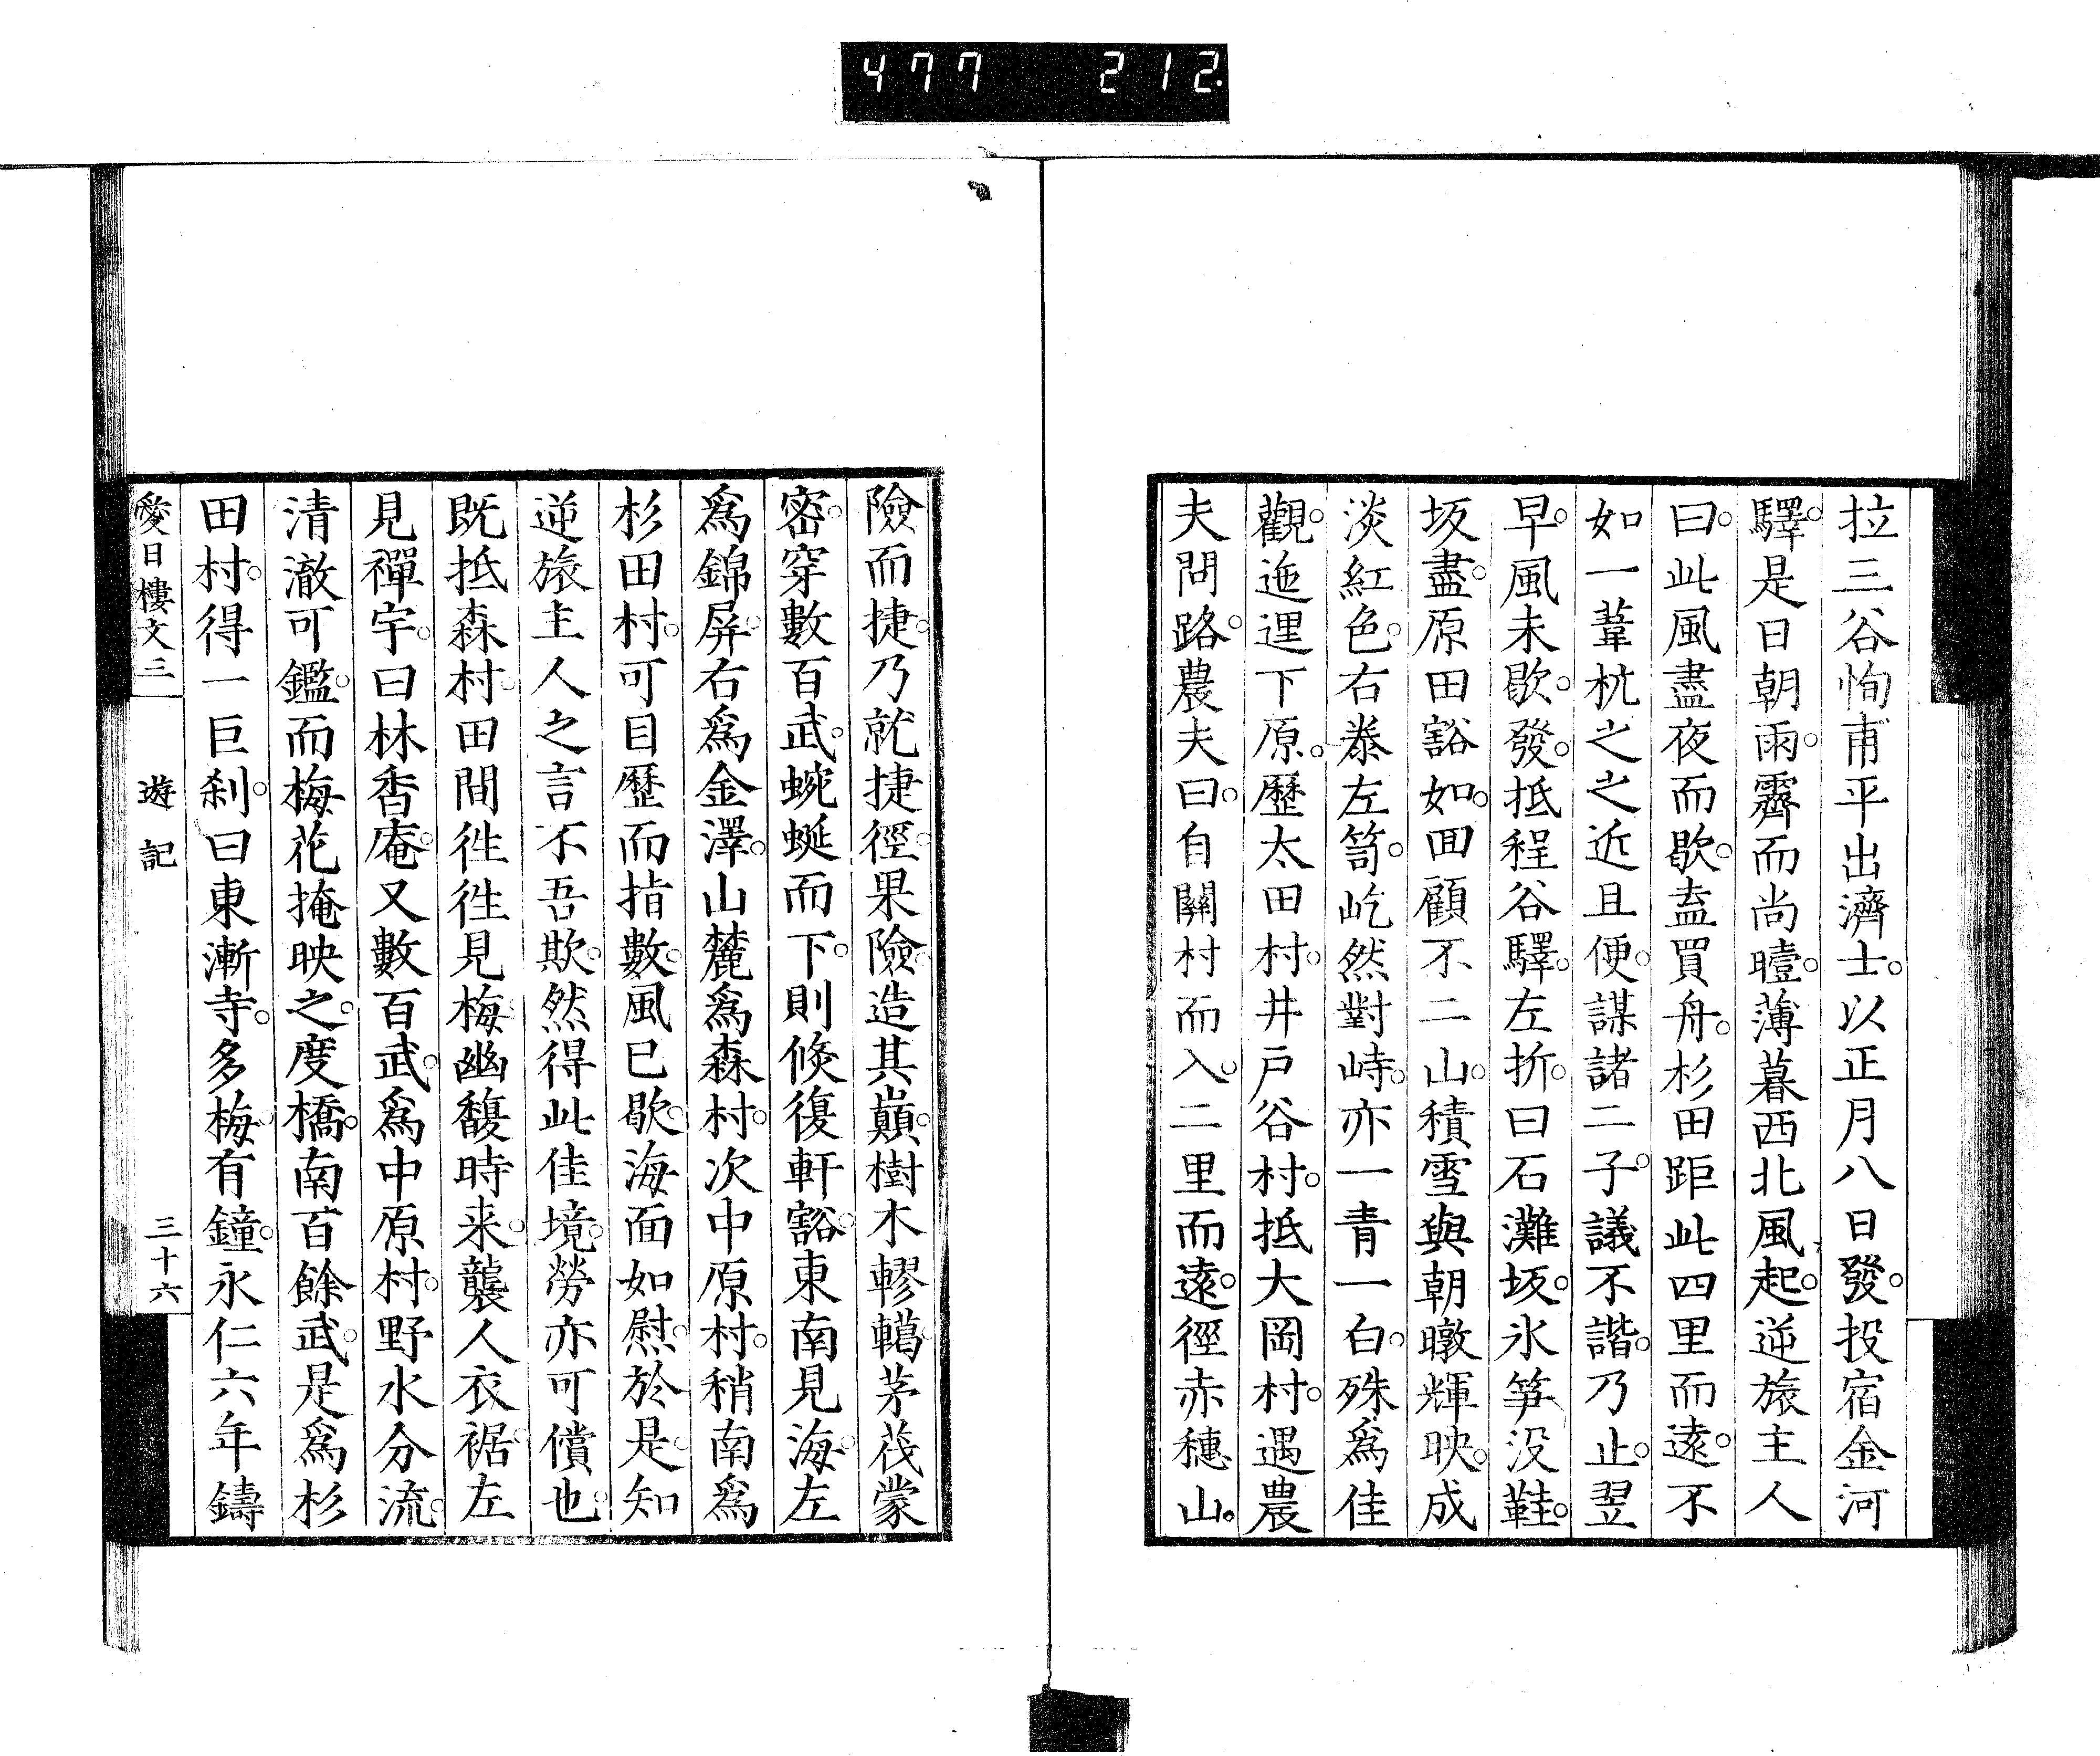 477 212.
拉三谷恂甫平出濟士。以正月八日發。投宿金河
驛。是日朝雨。霽而尚曀。薄暮西北風起。逆旅主人
曰。此風盡夜而歇。盍買舟。杉田距此四里而遠。不
如一葦杭之之近且便。謀諸二子。議不諧。乃止。翌
早。風未歇。發。抵程谷驛。左折。曰石灘坂。氷笋没鞋。
坂盡。原田豁如。回顧不二山。積雪與朝暾輝映。成
淡紅色。右㤗左笥。屹然對峙。亦一青一白。殊爲佳
觀。迤逕下原。歷太田村。井戸谷村。抵大岡村。遇農
夫問路。農夫曰。自關村而入。二里而遠。徑赤穗山。
險而捷。乃就捷徑。果險。造其巔。樹木轇轕。茅茷蒙
密。穿數百武。蜿蜒而下。則倐復軒豁。東南見海。左
爲錦屏。右爲金澤。山麓爲森村。次中原村。稍南爲
杉田村。可目歷而指數。風已歇。海面如熨。於是。知
逆旅主人之言不吾欺。然得此佳境。勞亦可償也。
既抵森村。田間徃徃見梅。幽馥時来。襲人衣裾。左
見禪宇。曰林香庵。又數百武。爲中原村。野水分流。
清澈可鑑。而梅花掩映之。度橋。南百餘武。是爲杉
田村。得一巨刹。曰東漸寺。多梅。有鐘。永仁六年鑄
愛日樓文三 遊記 三十六